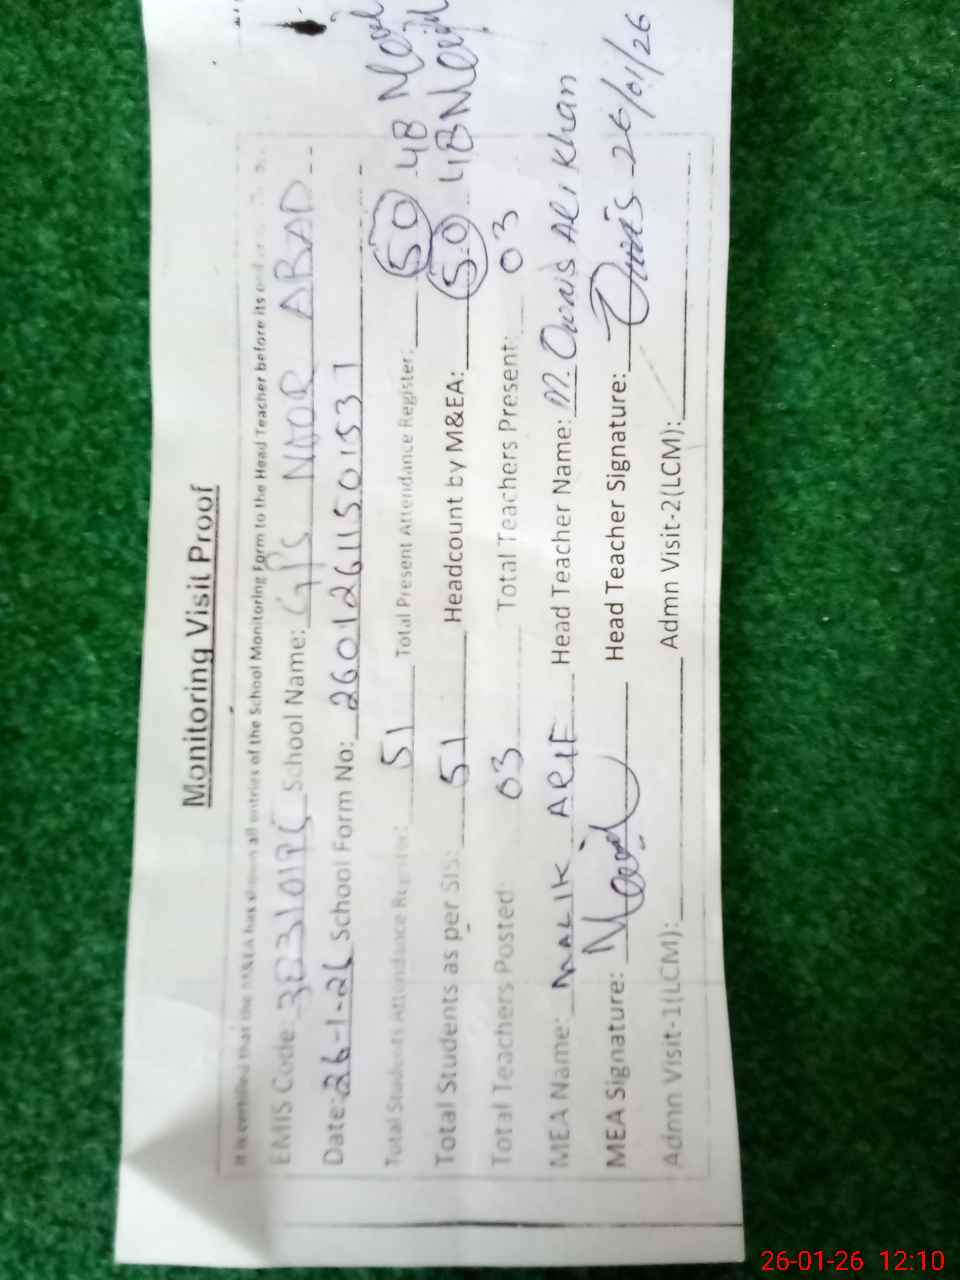 Monitoring Visit Proof
It is certified that the M&EA has shown all entries of the School Monitoring Form to the Head Teacher before its
EMIS Code: School Name: GPS NOOR ABAD
Date: 26-1-26 School Form No:
Total Students Attendance Register: 51 Total Present Attendance Register: 50 48
Total Students as per SIS: 51 Headcount by M&EA: 50 48
Total Teachers Posted: 03 Total Teachers Present: 03
MEA Name: MALIK ARIF Head Teacher Name: M. Owais Ali Khan
MEA Signature: Head Teacher Signature: Owais 26/01/26
Admn Visit-1(LCM): Admn Visit-2(LCM):
26-01-26 12:10